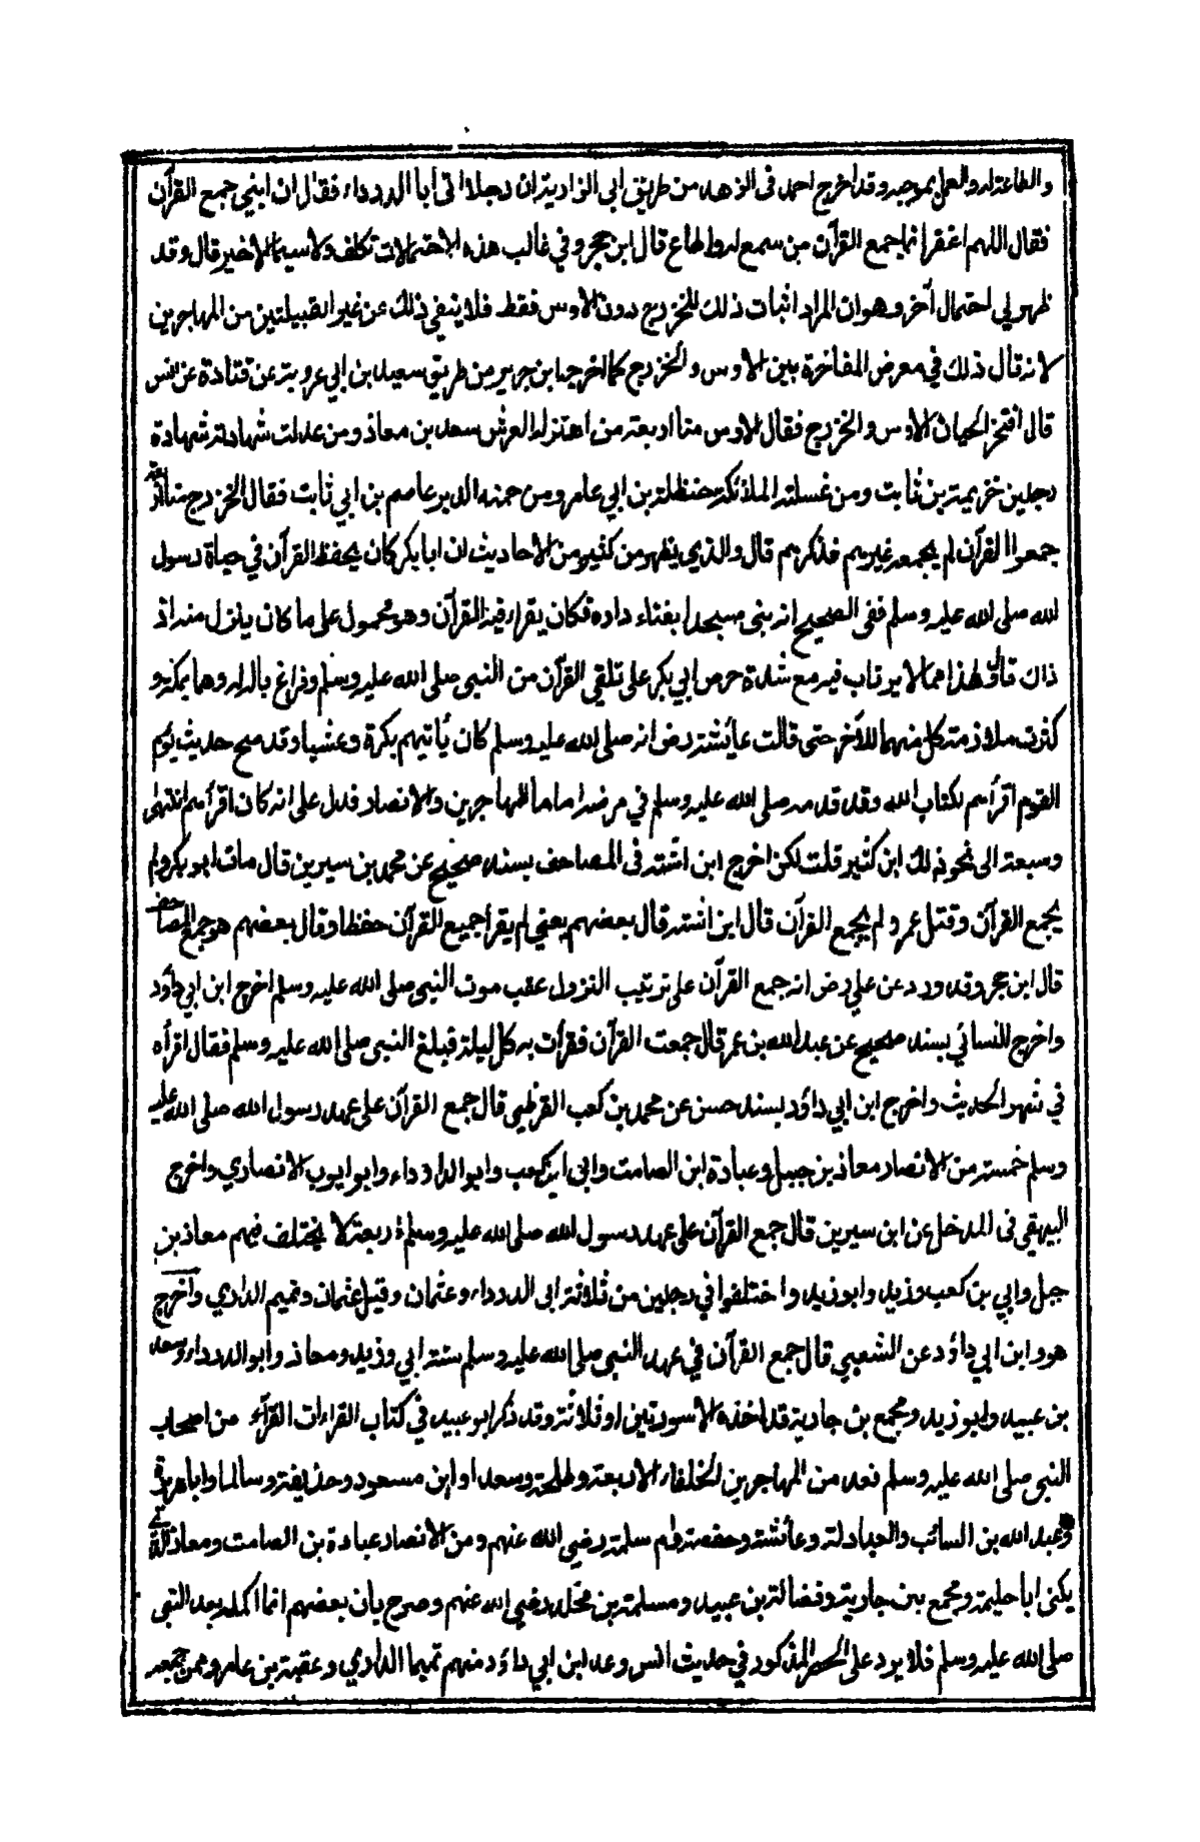 والطاعة له والعمل بموجبه وقد اخرج احمد فى الزهد من طريق ابى الزاهرية ان رجلا اتى ابا الدرداء فقال ان ابنى جمع القرآن
فقال اللهم اغفر انما جمع القرآن من سمع له واطاع قال ابن حجر وفي غالب هذه الاحتمالات تكلف ولا سيما الاخير قال وقد
ظهر لي احتمال آخر وهو ان المراد اثبات ذلك للخزرج دون الاوس فقط فلا ينفي ذلك عن غير القبيلتين من المهاجرين
لانه قال ذلك في معرض المفاخرة بين الاوس والخزرج كما اخرجه ابن جرير من طريق سعيد بن ابي عروبة عن قتادة عن انس
قال افتخر الحيان الاوس والخزرج فقال الاوس منا اربعة من اهتز له العرش سعد بن معاذ ومن عدلت شهادته شهادة
رجلين خزيمة بن ثابت ومن غسلته الملائكة حنظلة بن ابي عامر ومن حمته الدبر عاصم بن ابي ثابت فقال الخزرج منا اربعة
جمعوا القرآن لم يجمعه غيرهم فذكرهم قال والذي يظهر من كثير من الاحاديث ان ابا بكر كان يحفظ القرآن في حياة رسول
الله صلى الله عليه وسلم ففى الصحيح انه بنى مسجدا بفناء داره فكان يقرا فيه القرآن وهو محمول على ما كان ينزل منه اذ
ذاك قال وهذا مما لا يرتاب فيه مع شدة حرص ابي بكر على تلقى القرآن من النبى صلى الله عليه وسلم وفراغ باله له وهما بمكة و
كثرت ملازمة كل منهما للآخر حتى قالت عائشة رض انه صلى الله عليه وسلم كان يأتيهم بكرة وعشيا وقد صح حديث يؤم
القوم اقرأهم لكتاب الله وقد قدمه صلى الله عليه وسلم في مرضه اماما للمهاجرين والانصار فدل على انه كان اقرأهم انتهى
وسبقه الى نحو ذلك ابن كثير قلت لكن اخرج ابن اشته فى المصاحف بسند صحيح عن محمد بن سيرين قال مات ابو بكر ولم
يجمع القرآن وقتل عمر ولم يجمع القرآن قال ابن اشته قال بعضهم يعني لم يقرأ جميع القرآن حفظا وقال بعضهم هو جمع المصاحف
قال ابن حجر وقد ورد عن علي رض انه جمع القرآن على ترتيب النزول عقب موت النبى صلى الله عليه وسلم اخرج ابن ابي داؤد
واخرج النسائي بسند صحيح عن عبد الله بن عمر قال جمعت القرآن فقرأت به كل ليلة فبلغ النبى صلى الله عليه وسلم فقال اقرأه
في شهر الحديث واخرج ابن ابي داؤد بسند حسن عن محمد بن كعب القرظي قال جمع القرآن على عهد رسول الله صلى الله عليه
وسلم خمسة من الانصار معاذ بن جبل وعبادة ابن الصامت وابى بن كعب وابو الدرداء وابو ايوب الانصاري واخرج
البيهقي فى المدخل عن ابن سيرين قال جمع القرآن على عهد رسول الله صلى الله عليه وسلم اربعة لا يختلف فيهم معاذ بن
جبل وابي بن كعب وزيد وابو زيد واختلفوا في رجلين من ثلاثة ابى الدرداء وعثمان وقيل عثمان وتميم الداري واخرج
هو وابن ابي داؤد عن الشعبي قال جمع القرآن في عهد النبى صلى الله عليه وسلم ستة ابي وزيد ومعاذ وابو الدرداء وسعد
بن عبيد وابو زيد ومجمع بن جارية قد اخذه الا سورتين او ثلاثة وقد ذكر ابو عبيد في كتاب القراءات القرآء من اصحاب
النبى صلى الله عليه وسلم فعد من المهاجرين الخلفاء الاربعة وطلحة وسعدا وابن مسعود وحذيفة وسالما وابا هريرة
وعبد الله بن السائب والعبادلة وعائشة وحفصة وام سلمة رضي الله عنهم ومن الانصار عبادة بن الصامت ومعاذ الذي
يكنى ابا حليمة ومجمع بن جارية وفضالة بن عبيد ومسلمة بن مخلد رضي الله عنهم وصرح بان بعضهم انما اكمله بعد النبى
صلى الله عليه وسلم فلا يرد على الحصر المذكور في حديث انس وعد ابن ابي داؤد منهم تميما الداري وعقبة بن عامر وممن جمعه